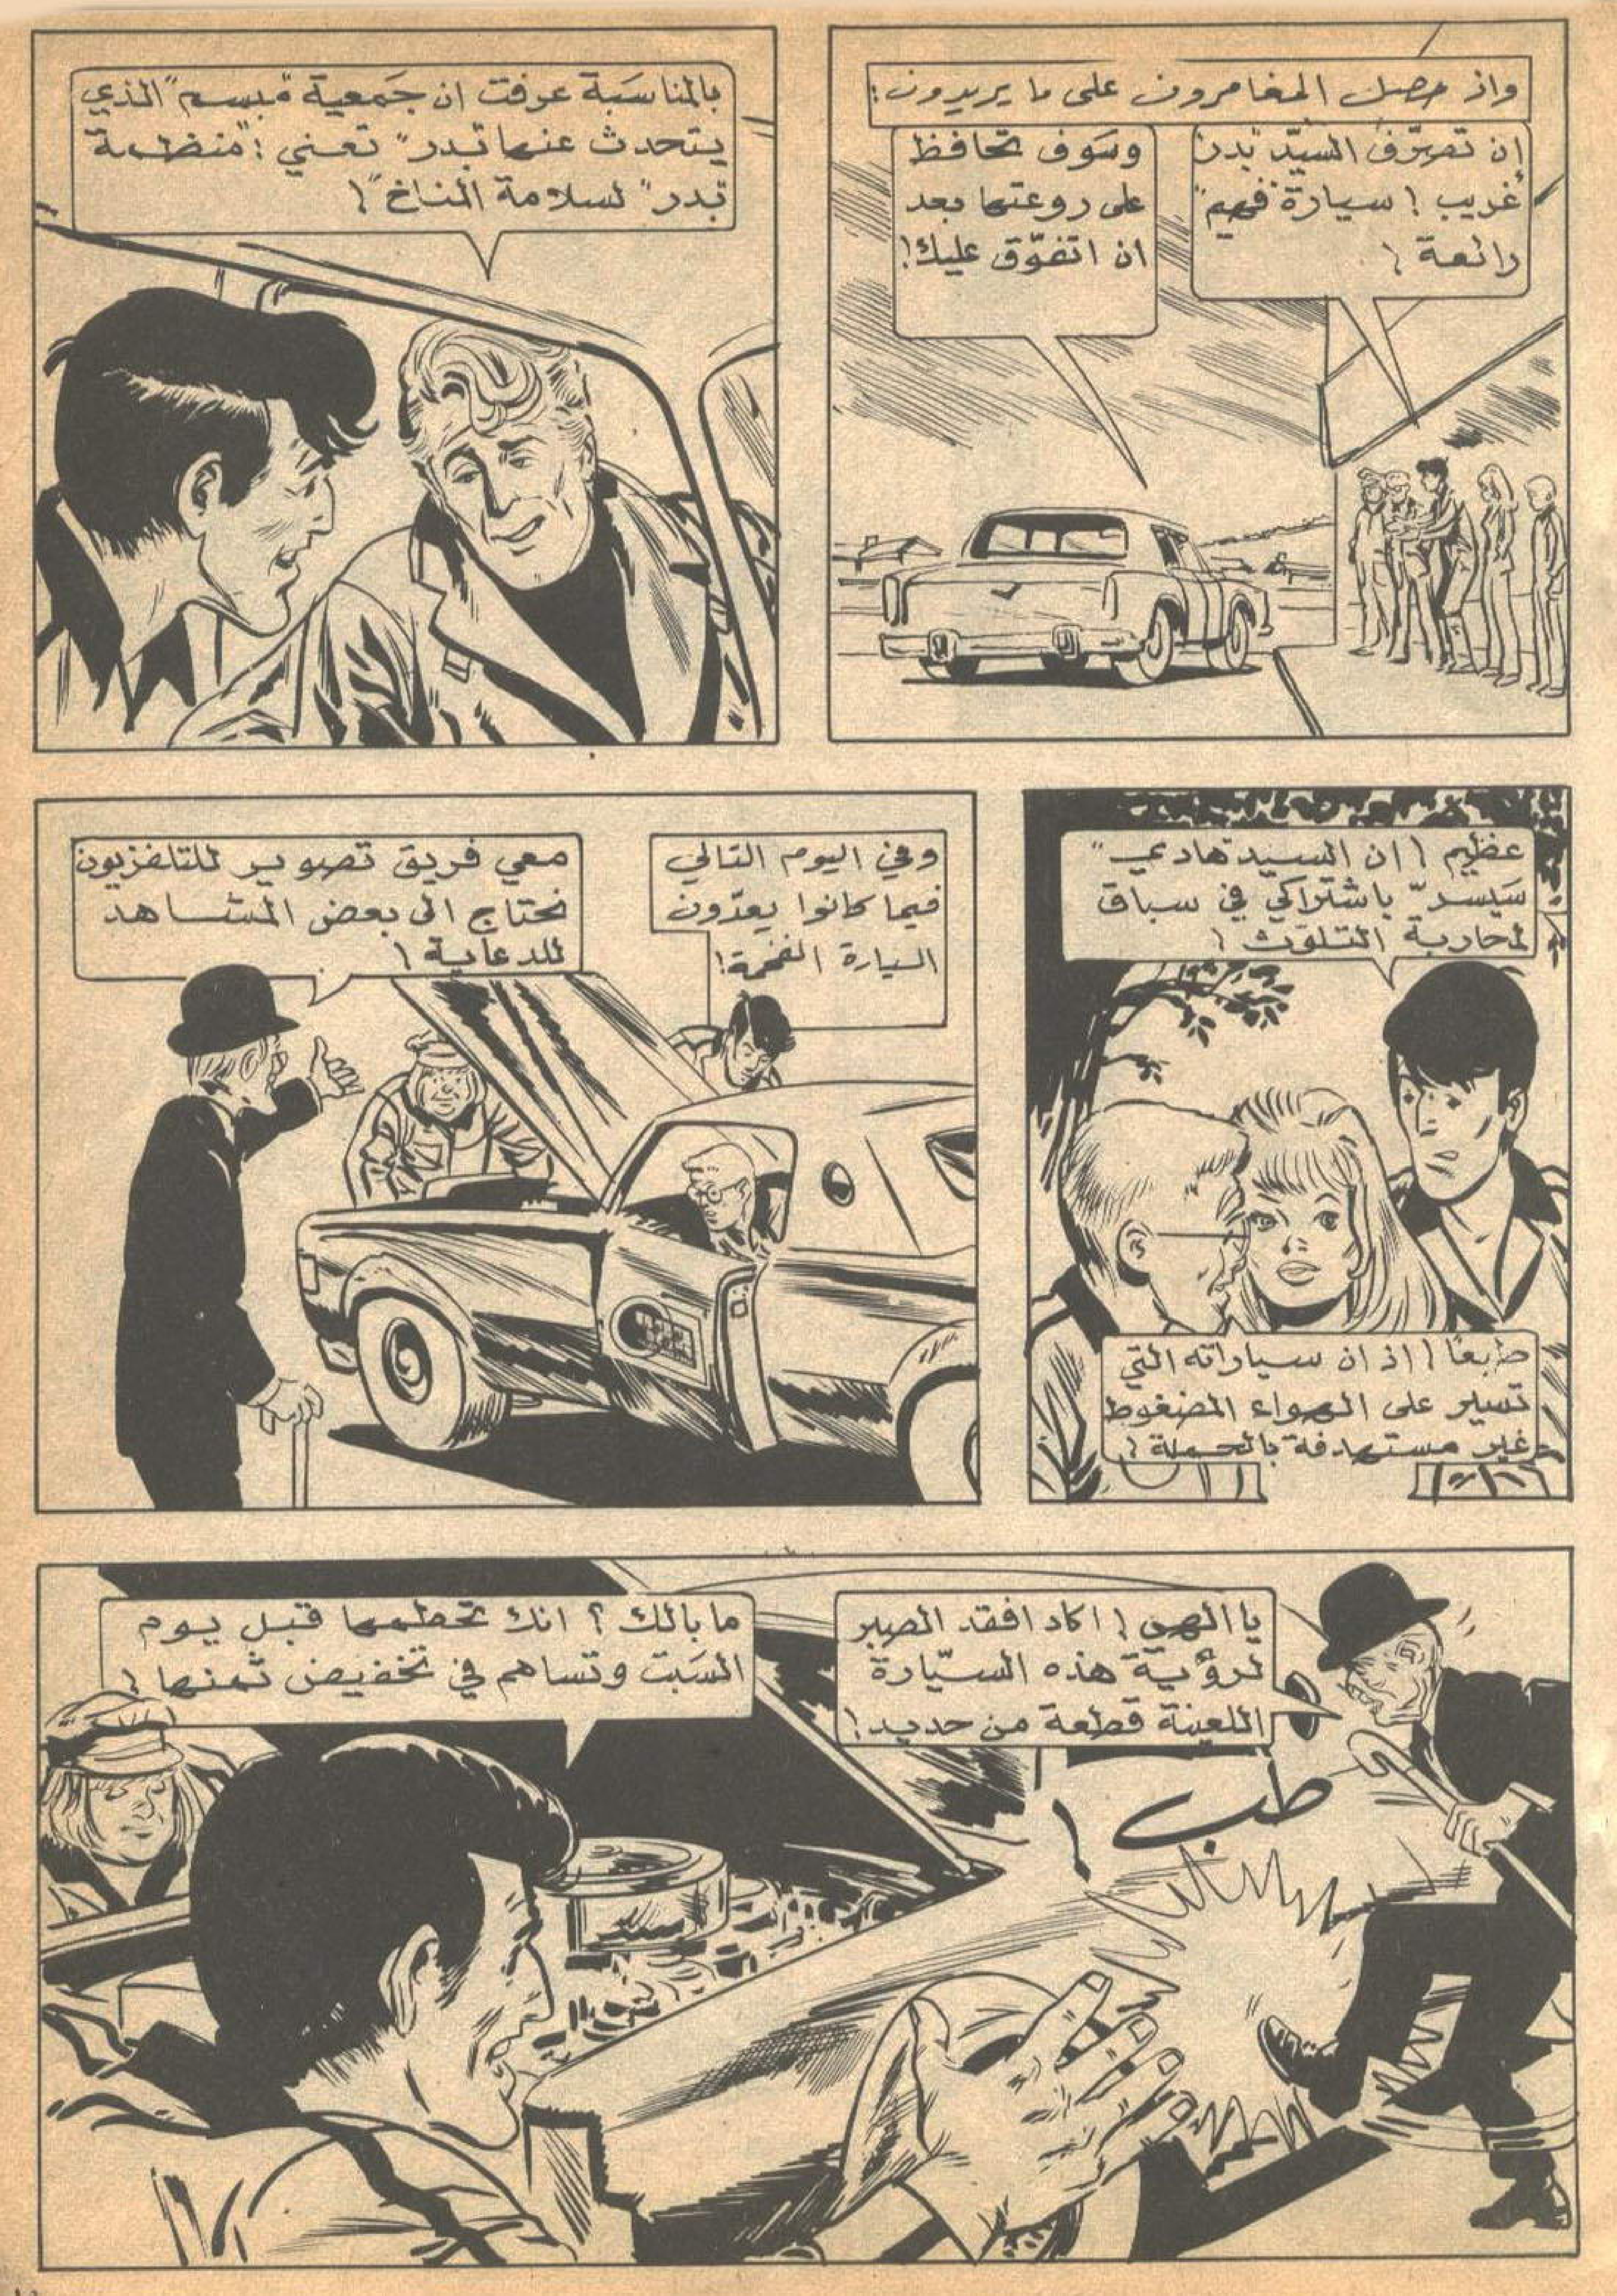 واذ حصل المغامرون على ما يريدون:
إن تصرّف السيّد "بدر"
غريب! سيارة "فهيم"
رائعة!
وسوف تحافظ
على روعتها بعد
ان اتفوّق عليك!
بالمناسَبة عرفت ان جَمعية "مبسم" الذي
يتحدث عنها "بدر" تعني: "منظمة
"بدر" لسلامة المناخ"!
عظيم! ان السيد "هادي"
سَيسرّ باشتراكي في سباق
لمحاربة التلوّث!
طبعًا! اذ ان سياراته التي
تسير على الهواء المضغوط
غير مستهدفة بالحملة!
وفي اليوم التالي
فيما كانوا يعدّون
السيارة الفخمة!
معي فريق تصوير للتلفزيون
نحتاج الى بعض المشاهد
للدعاية!
يا الهي! اكاد افقد الصبر
لرؤية هذه السيّارة
اللعينة قطعة من حديد!
طب!
ما بالك؟ انك تحطمها قبل يوم
السَبت وتساهم في تخفيض ثمنها!